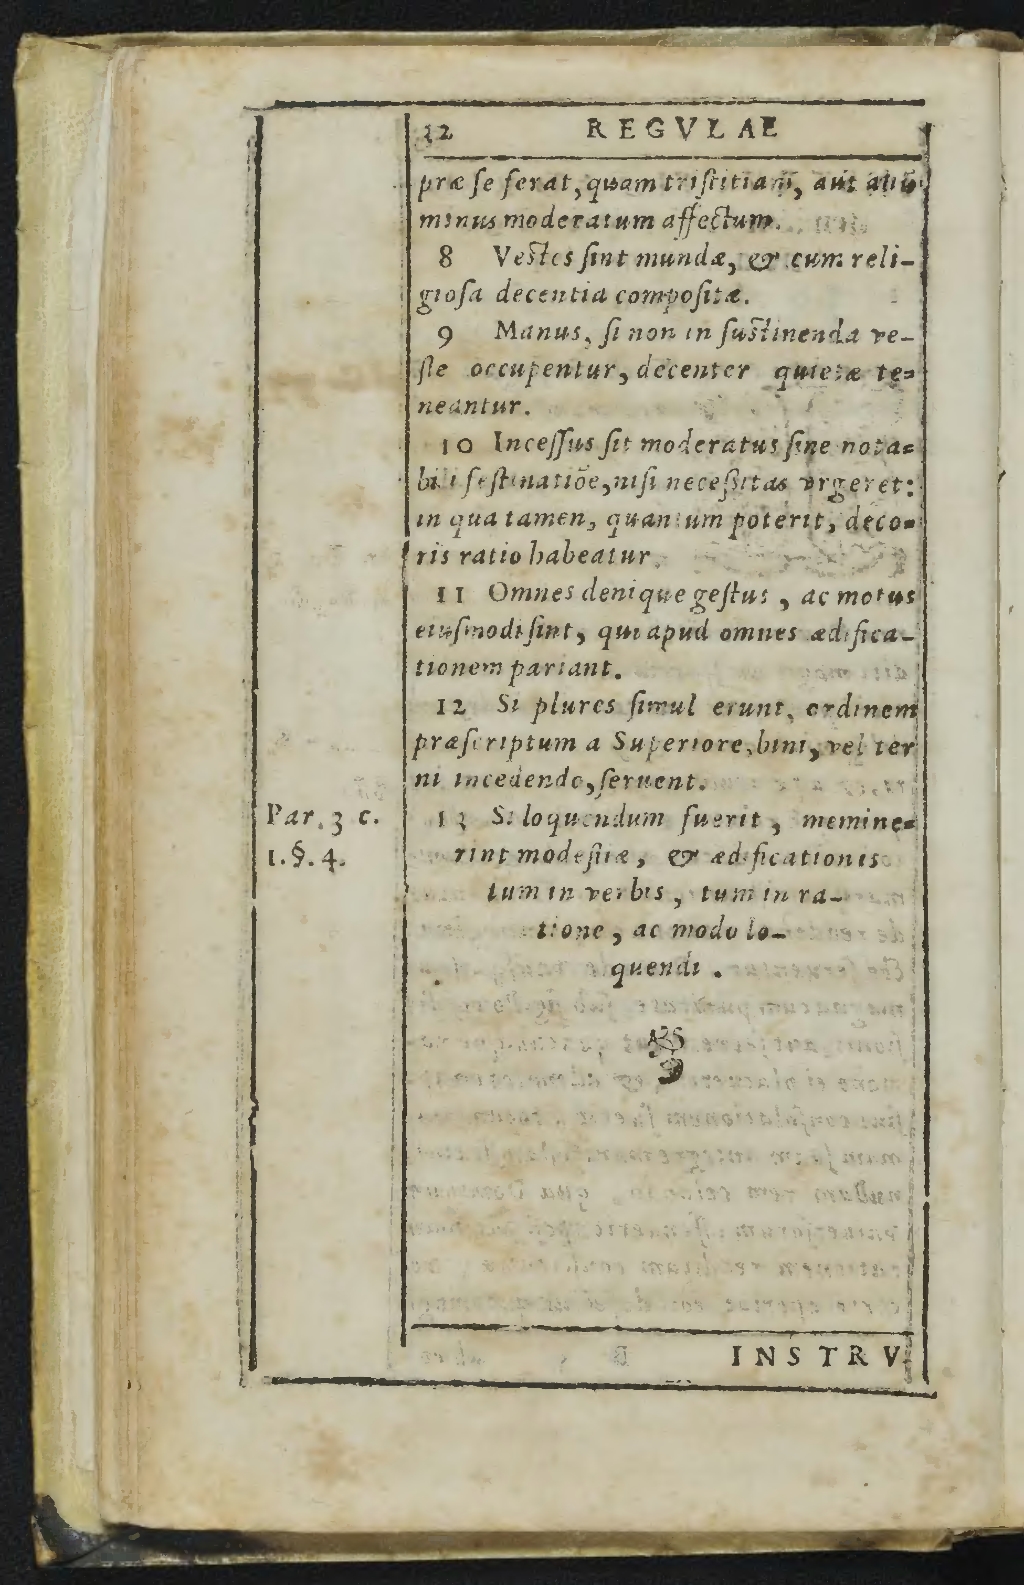 32 REGVLAE
præ se ferat, quam tristitiam, aut aliū
minus moderatum affectum.
8 Vestes sint mundæ, & cum reli-
giosa decentia compositæ.
9 Manus, si non in sustinenda ve-
ste occupentur, decenter quietæ te-
neantur.
10 Incessus sit moderatus sine nota-
bili festinatiōe, nisi necessitas vrgeret:
in qua tamen, quantum poterit, deco-
ris ratio habeatur.
11 Omnes denique gestus, ac motus
eiusmodi sint, qui apud omnes ædifica-
tionem pariant.
12 Si plures simul erunt, ordinem
præscriptum a Superiore, bini, vel ter
ni incedendo, seruent.
Par. 3 c.
1. §. 4.
13 Si loquendum fuerit, memine-
rint modestiæ, & ædificationis
tum in verbis, tum in ra-
tione, ac modo lo-
quendi.
INSTRV